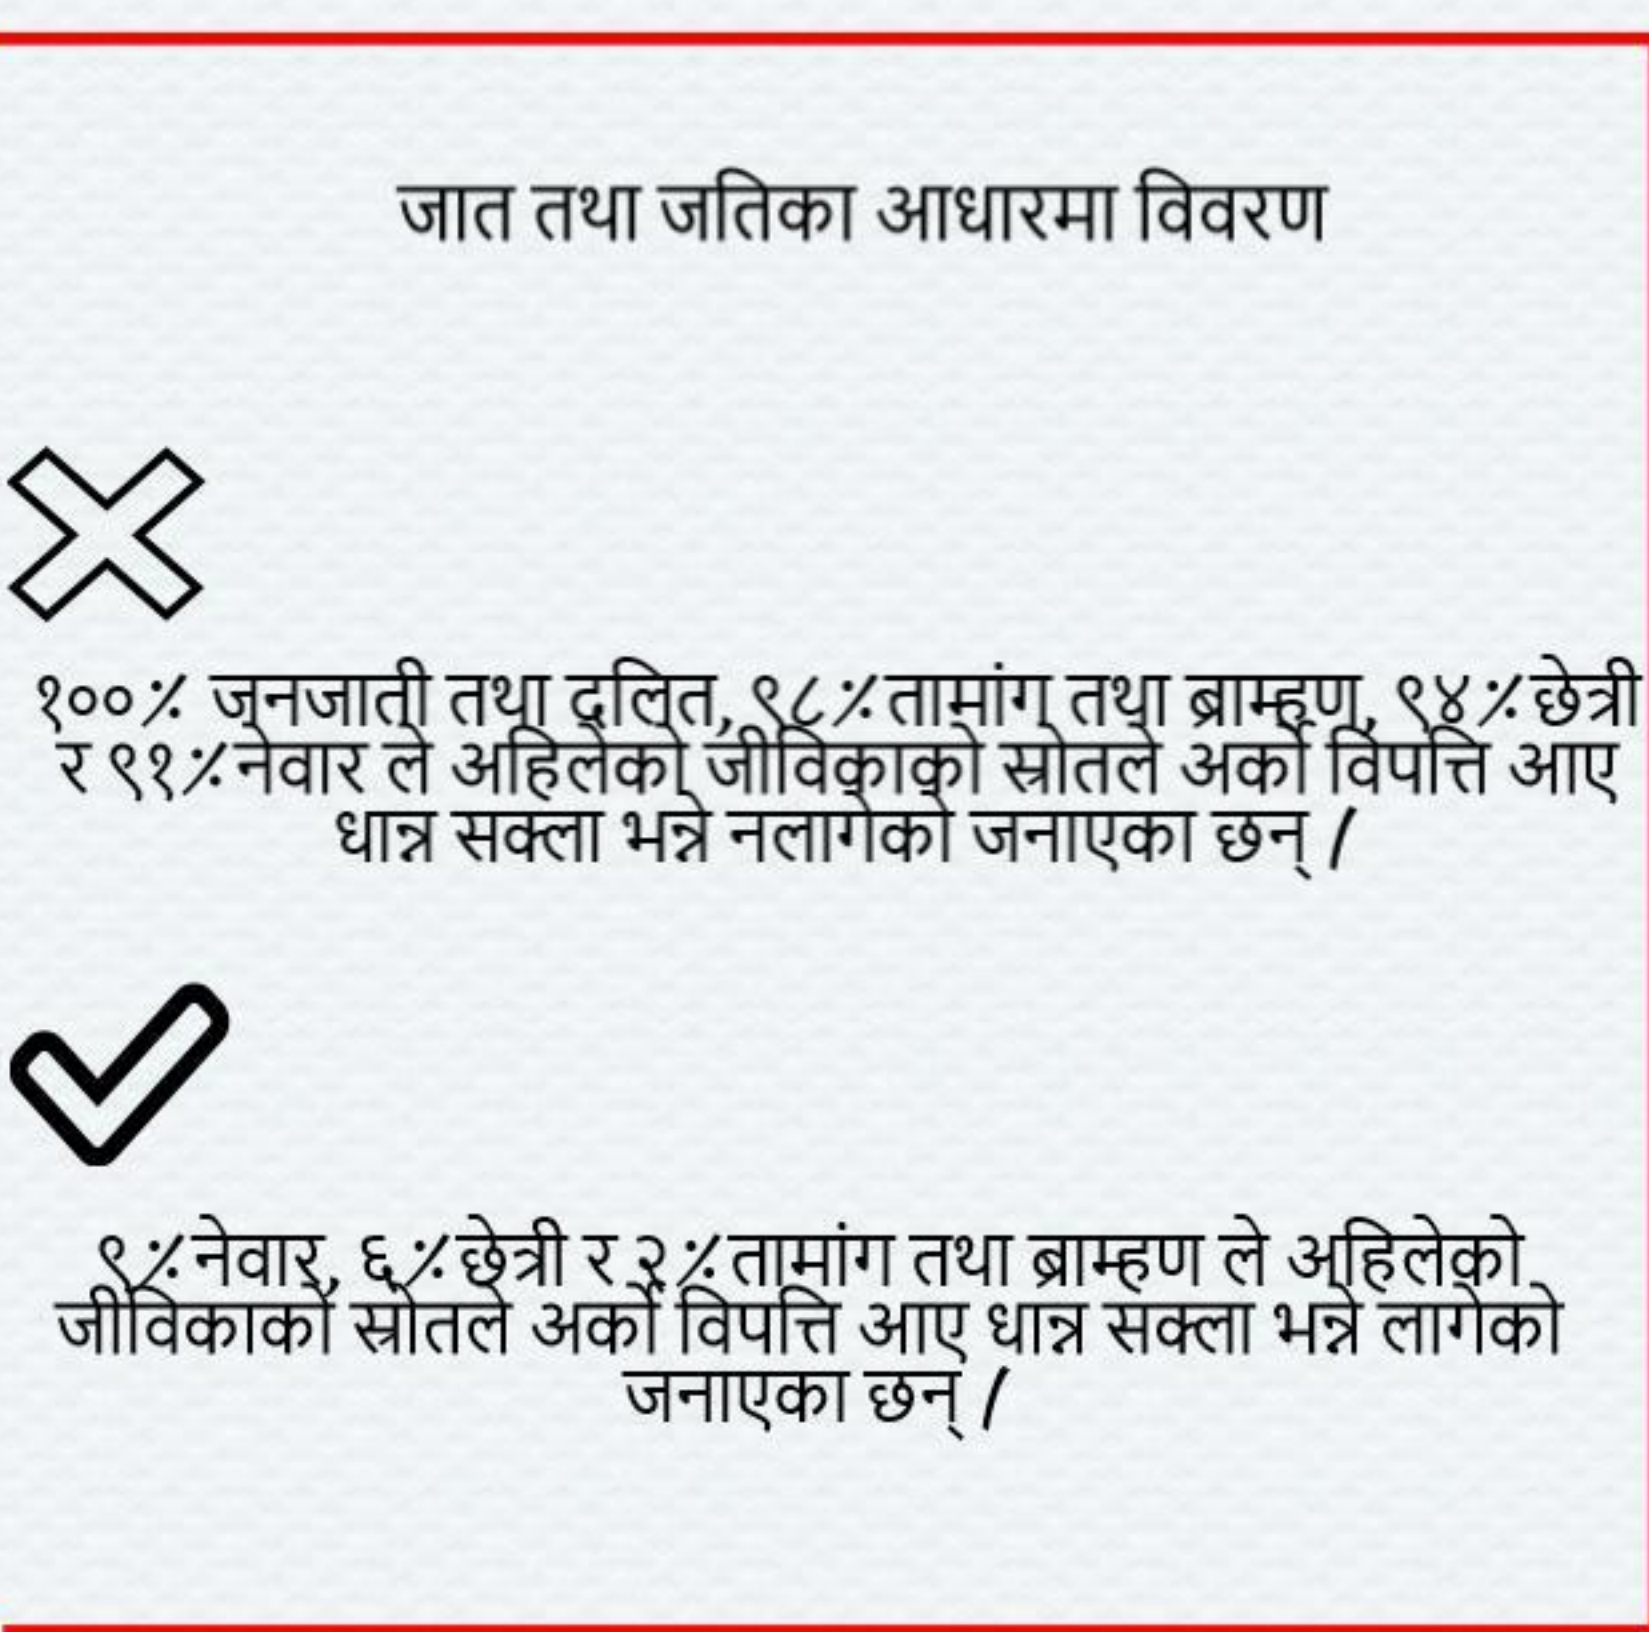 जात तथा जतिका आधारमा विवरण
१००% जनजाती तथा दलित, ९८%तामांग तथा ब्राम्हण, ९४%छेत्री
र ९१%नेवार ले अहिलेको जीविकाको स्रोतले अर्को विपत्ति आए
धान्न सक्ला भन्ने नलागेको जनाएका छन् /
९%नेवार, ६%छेत्री र २%तामांग तथा ब्राम्हण ले अहिलेको
जीविकाको स्रोतले अर्को विपत्ति आए धान्न सक्ला भन्ने लागेको
जनाएका छन् /